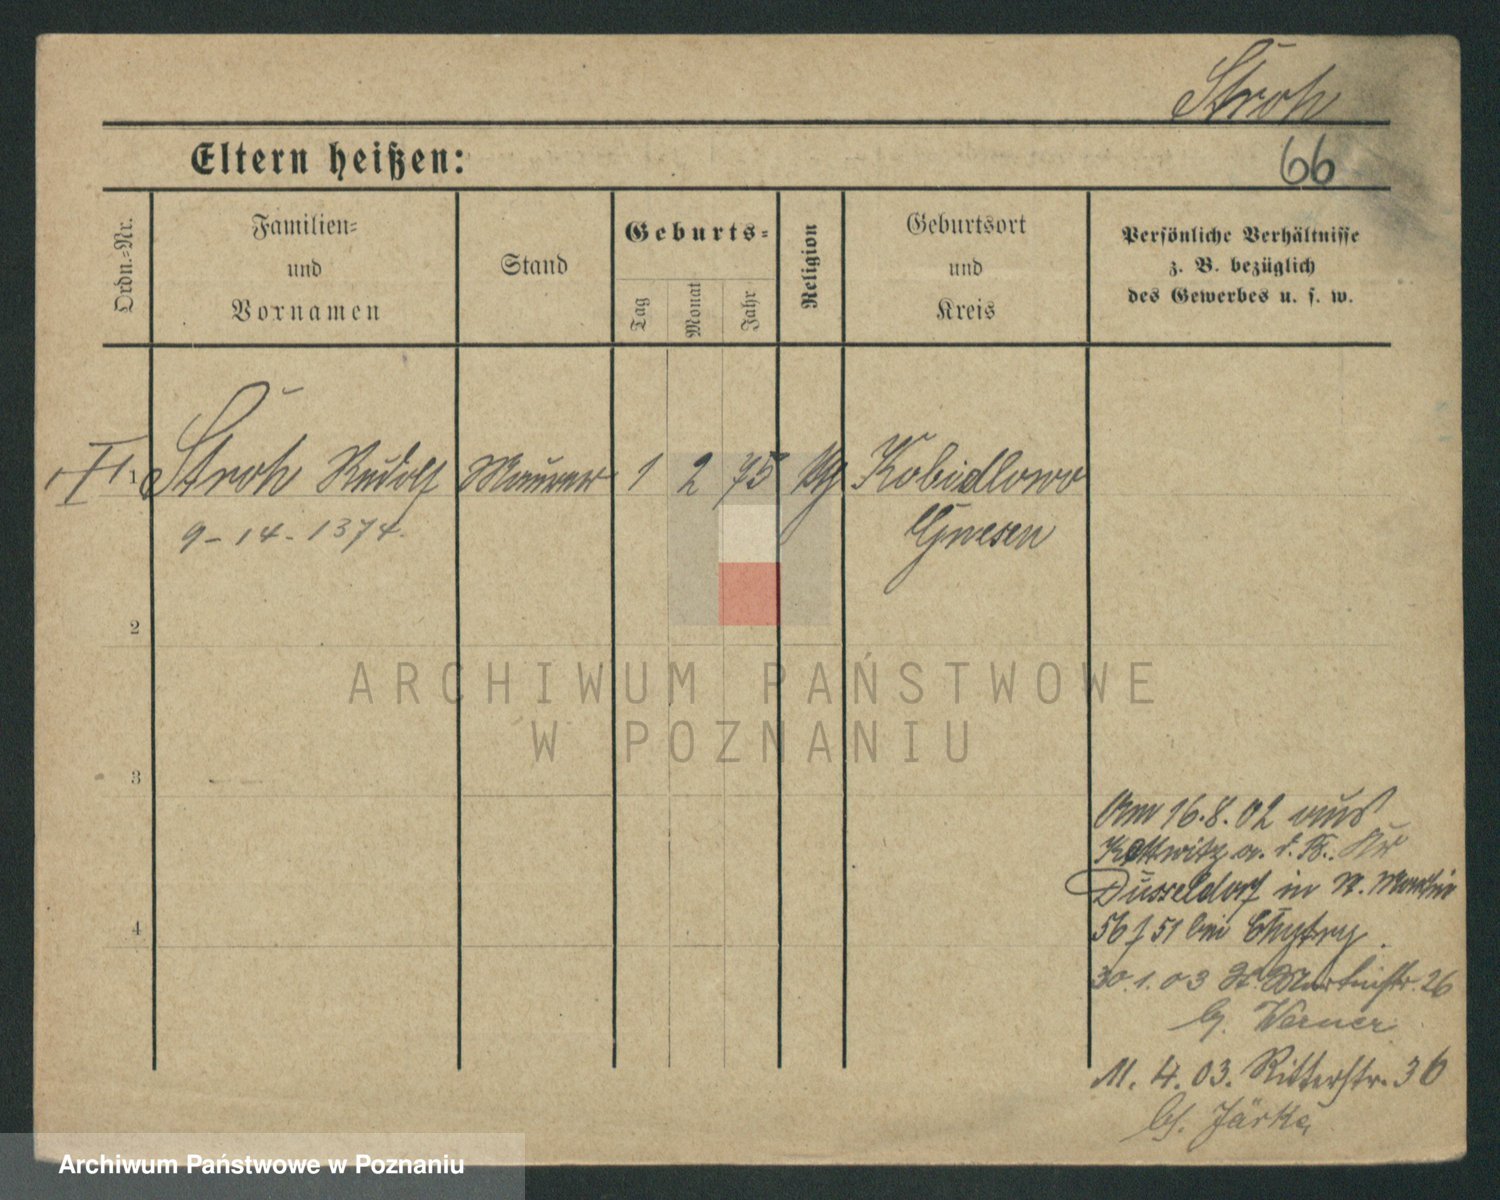 Stroh
Eltern heißen:
66
Ordn.-Nr.
Familien-
und
Vornamen
Stand
Geburts-
Tag
Monat
Jahr
Religion
Geburtsort
und
Kreis
Persönliche Verhältnisse
z. B. bezüglich
des Gewerbes u. s. w.
1 Stroh Rudolf Maurer 1 2 75 Kobidlowo
9-14-1374. Gnesen
2
ARCHIWUM PAŃSTWOWE
W POZNANIU
3
Am 16.8.02 aus
Kettwitz a. d. R. Kr
Düsseldorf in St. Martin
56 51 bei Chytry
4
30.1.03 St. Martinstr. 26
b. Werner
11. 4. 03. Ritterstr. 36
b. Järke
Archiwum Państwowe w Poznaniu